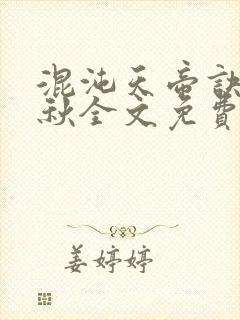 混沌天帝訣
秋全文免費
姜婷婷